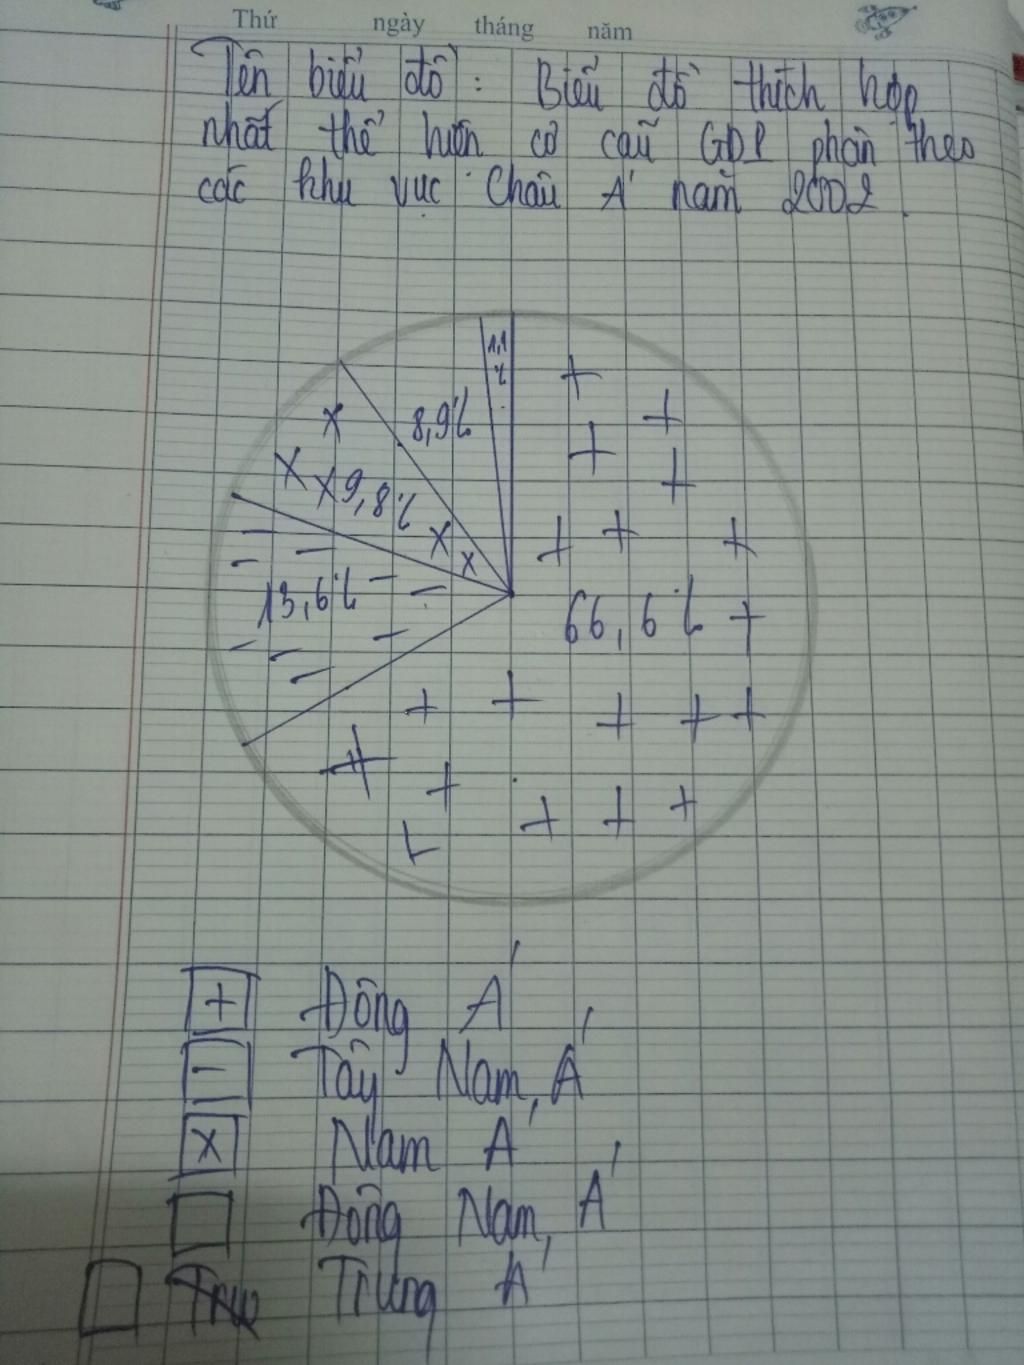 Thứ ngày tháng năm
Tên biểu đồ : Biểu đồ thích hợp
nhất thể hiện cơ cấu GDP phân theo
các khu vực Châu Á năm 2002.
1,1
%
8,9%
9,8%
13,6%
66,6%
Đông Á
Tây Nam Á
Nam Á
Đông Nam Á
Trung Á